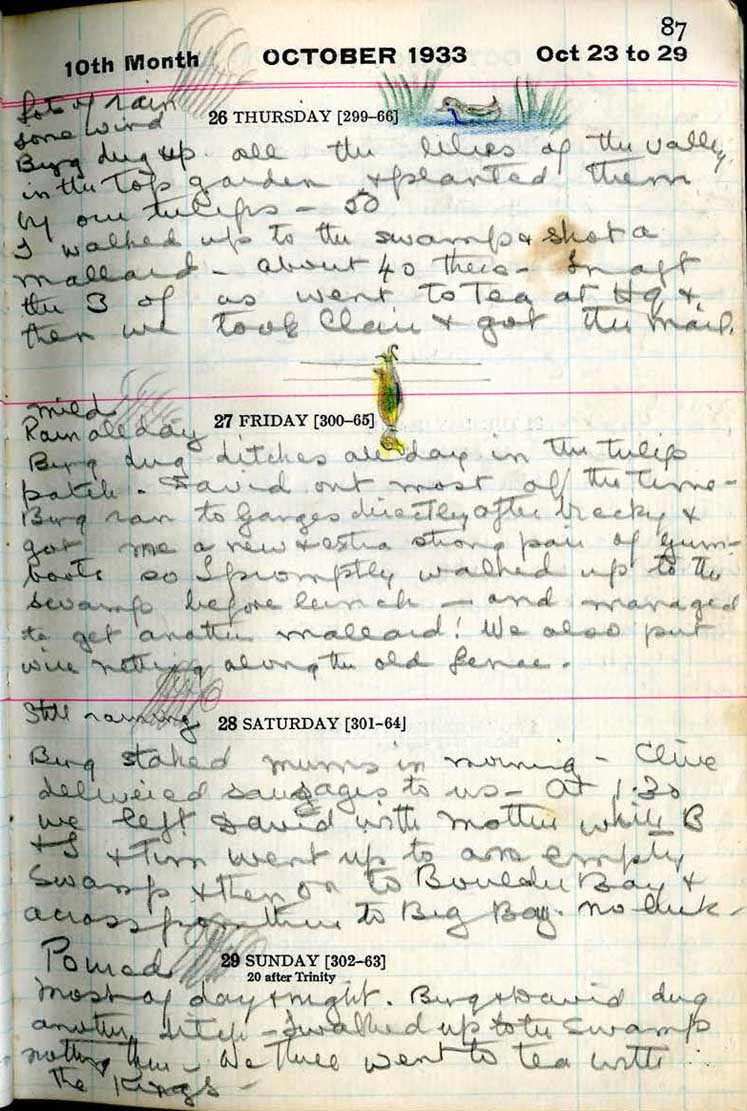 87
10th Month OCTOBER 1933 Oct 23 to 29
Lots of rain
some wind
26 THURSDAY [299-66]
Burg dug up all the lilies of the valley
in the top garden & planted them
by our tulips - 50
I walked up to the swamp & shot a
mallard - about 40 there - In aft
the 3 of us went to Tea at Hq &
then we took Clair & got the mail.
mild
Rain all day
27 FRIDAY [300-65]
Burg dug ditches all day in the tulip
patch. David out most of the time -
Burg ran to Ganges directly after brecky &
got me a new & extra strong pair of gum-
boots so I promptly walked up to the
swamp before lunch - and managed
to get another mallard! We also put
wire netting along the old fence.
Still raining
28 SATURDAY [301-64]
Burg staked mums in morning - Clive
delivered sausages to us - At 1.30
we left David with mother while B
& I & Tim went up to an empty
swamp & then on to Boulder Bay &
across from there to Big Bay. no luck -
Poured
29 SUNDAY [302-63]
20 after Trinity
most of day & night. Burg & David dug
another ditch - I walked up to the swamp
nothing there - We three went to tea with
the Kings -